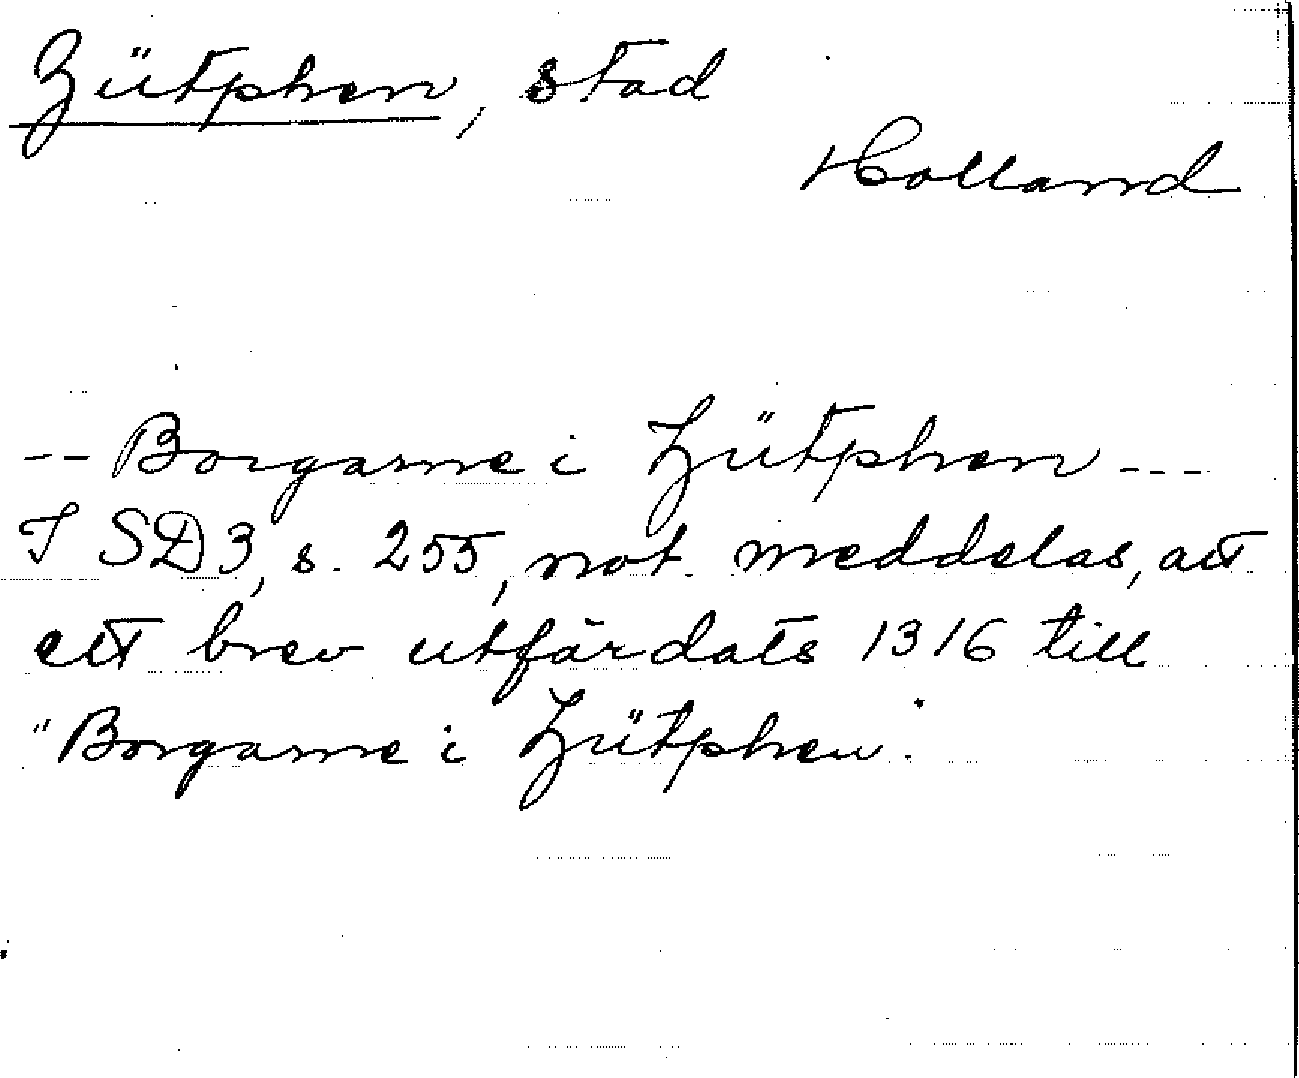 Zütphen, stad
Holland
-- Borgarne i Zütphen ---
I SD3, s. 255, not meddelas, att
ett brev utfärdats 1316 till
"Borgarne i Zütphen.